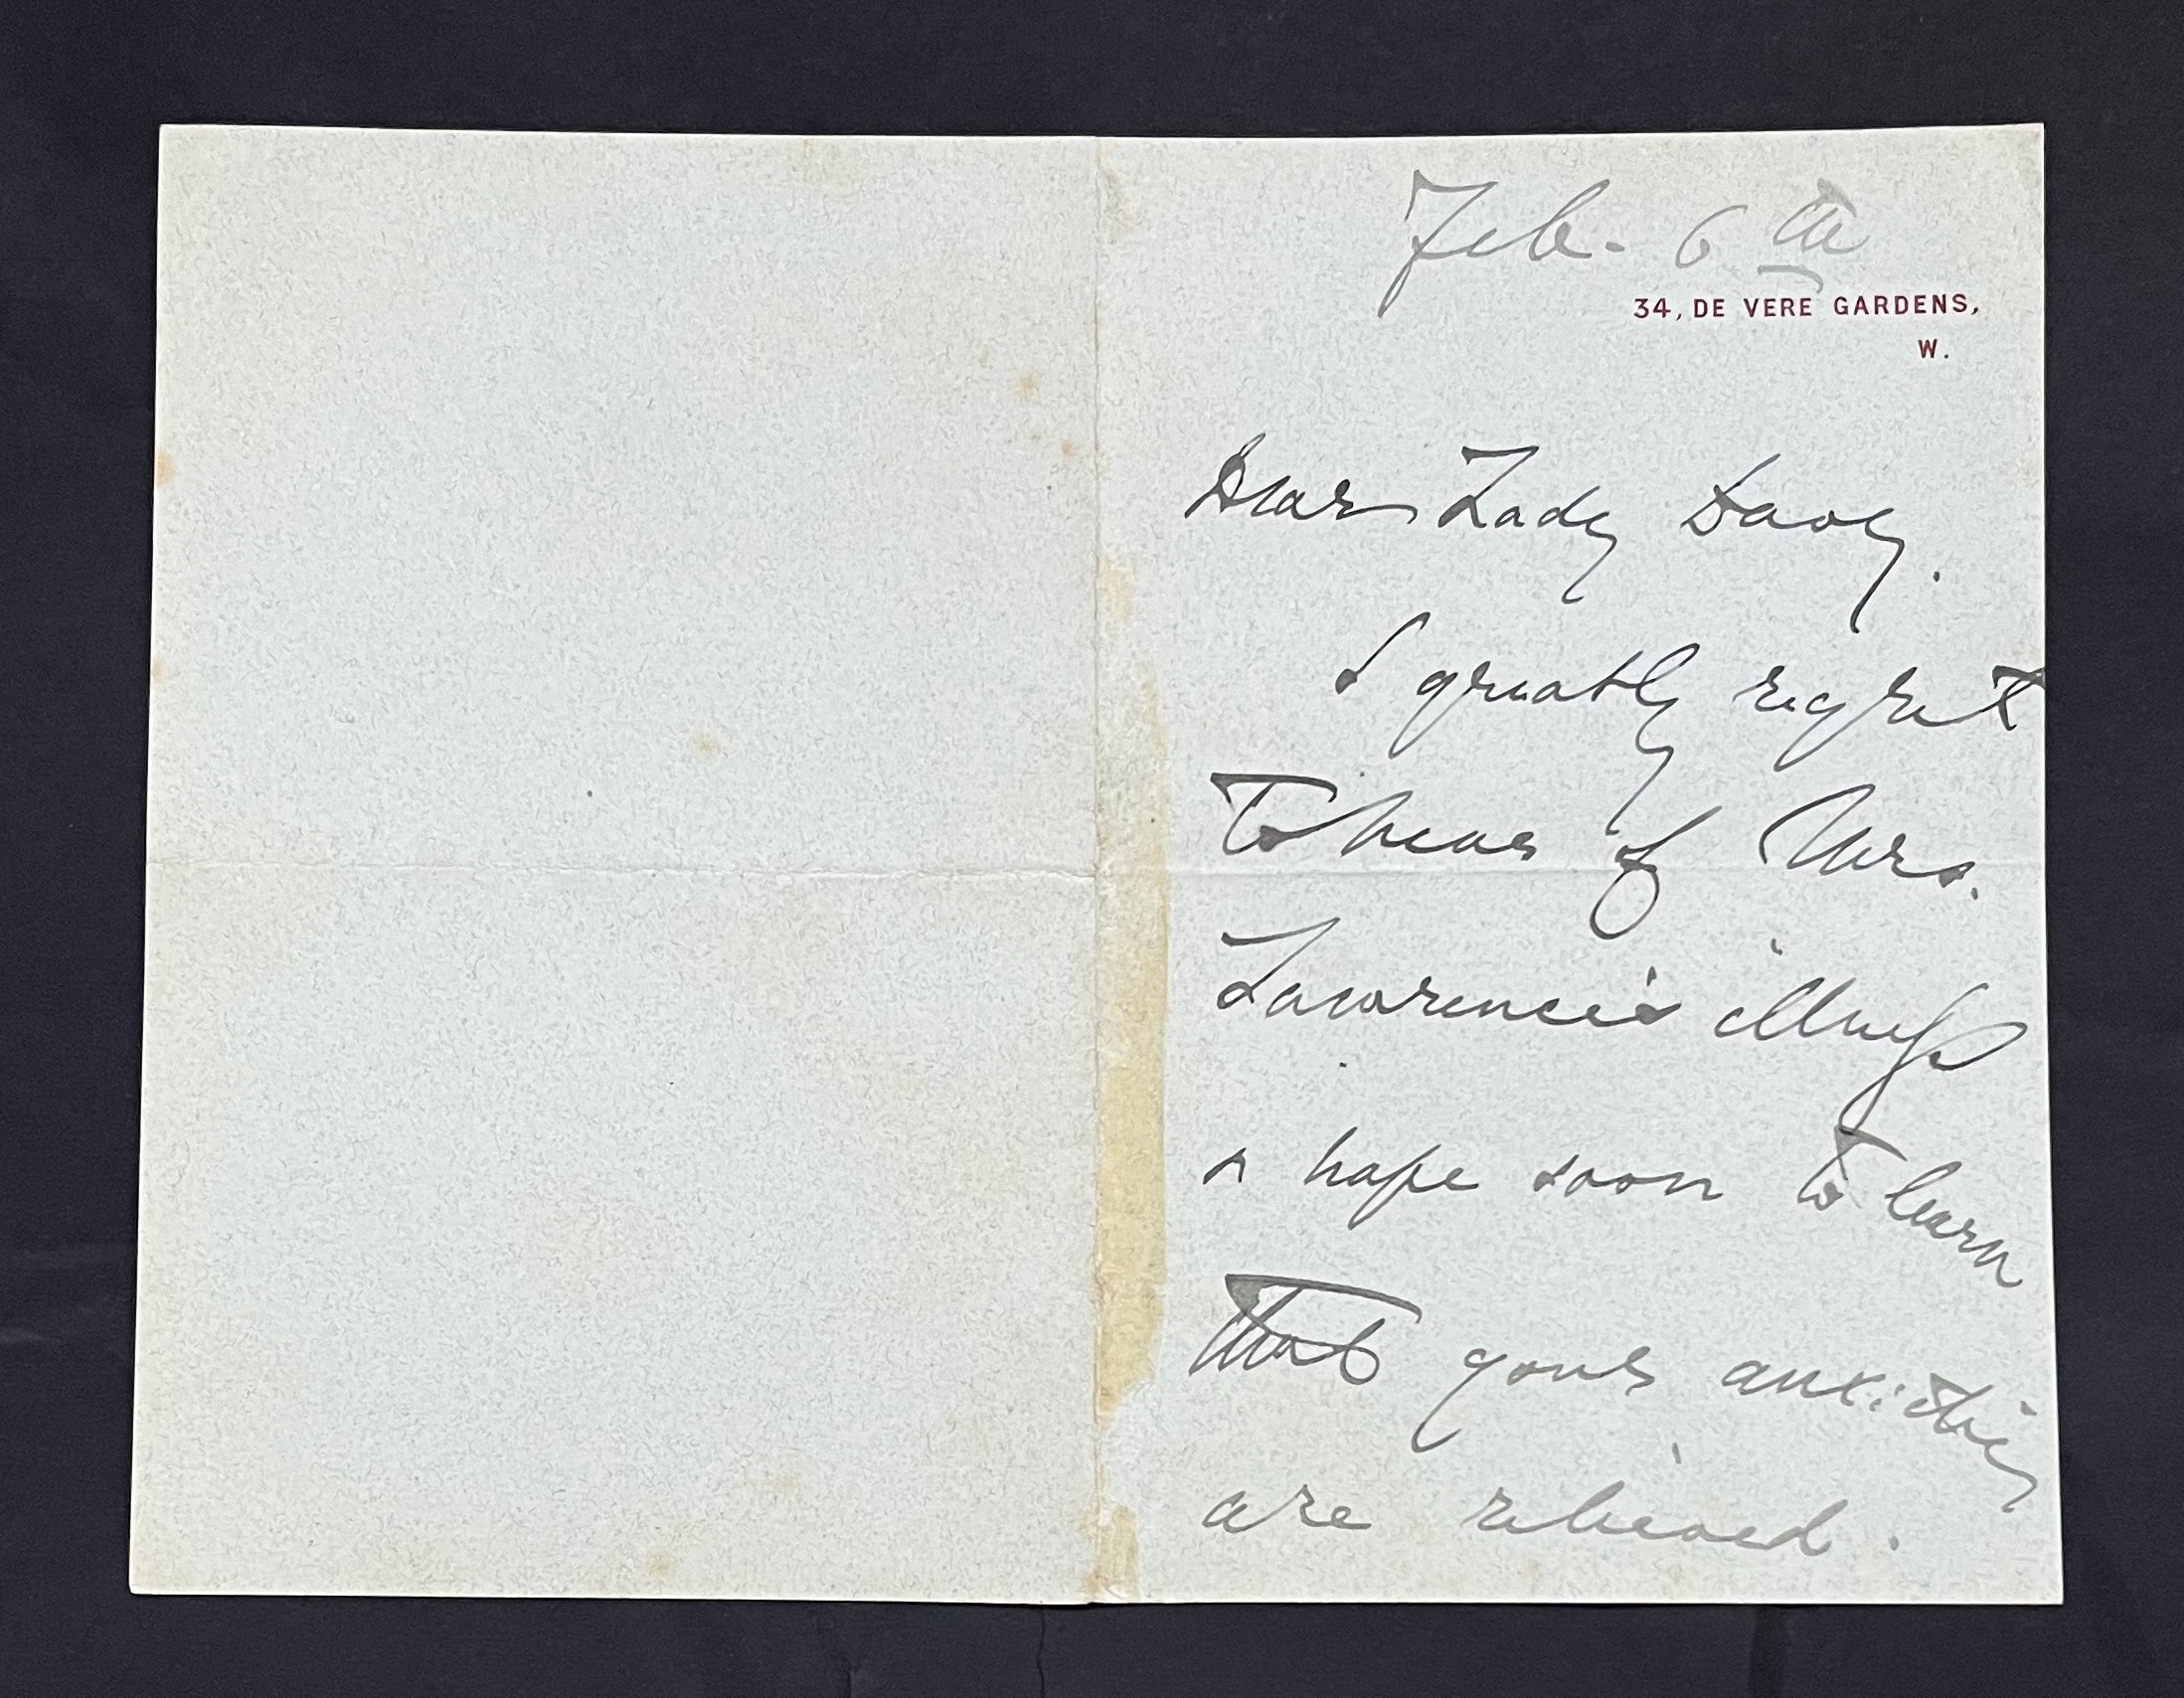 Feb. 6th
34, DE VERE GARDENS,
W.
Dear Lady Davey.
I greatly regret
to hear of Mrs.
Lawrence's illness
& hope soon to learn
that your anxieties
are relieved.